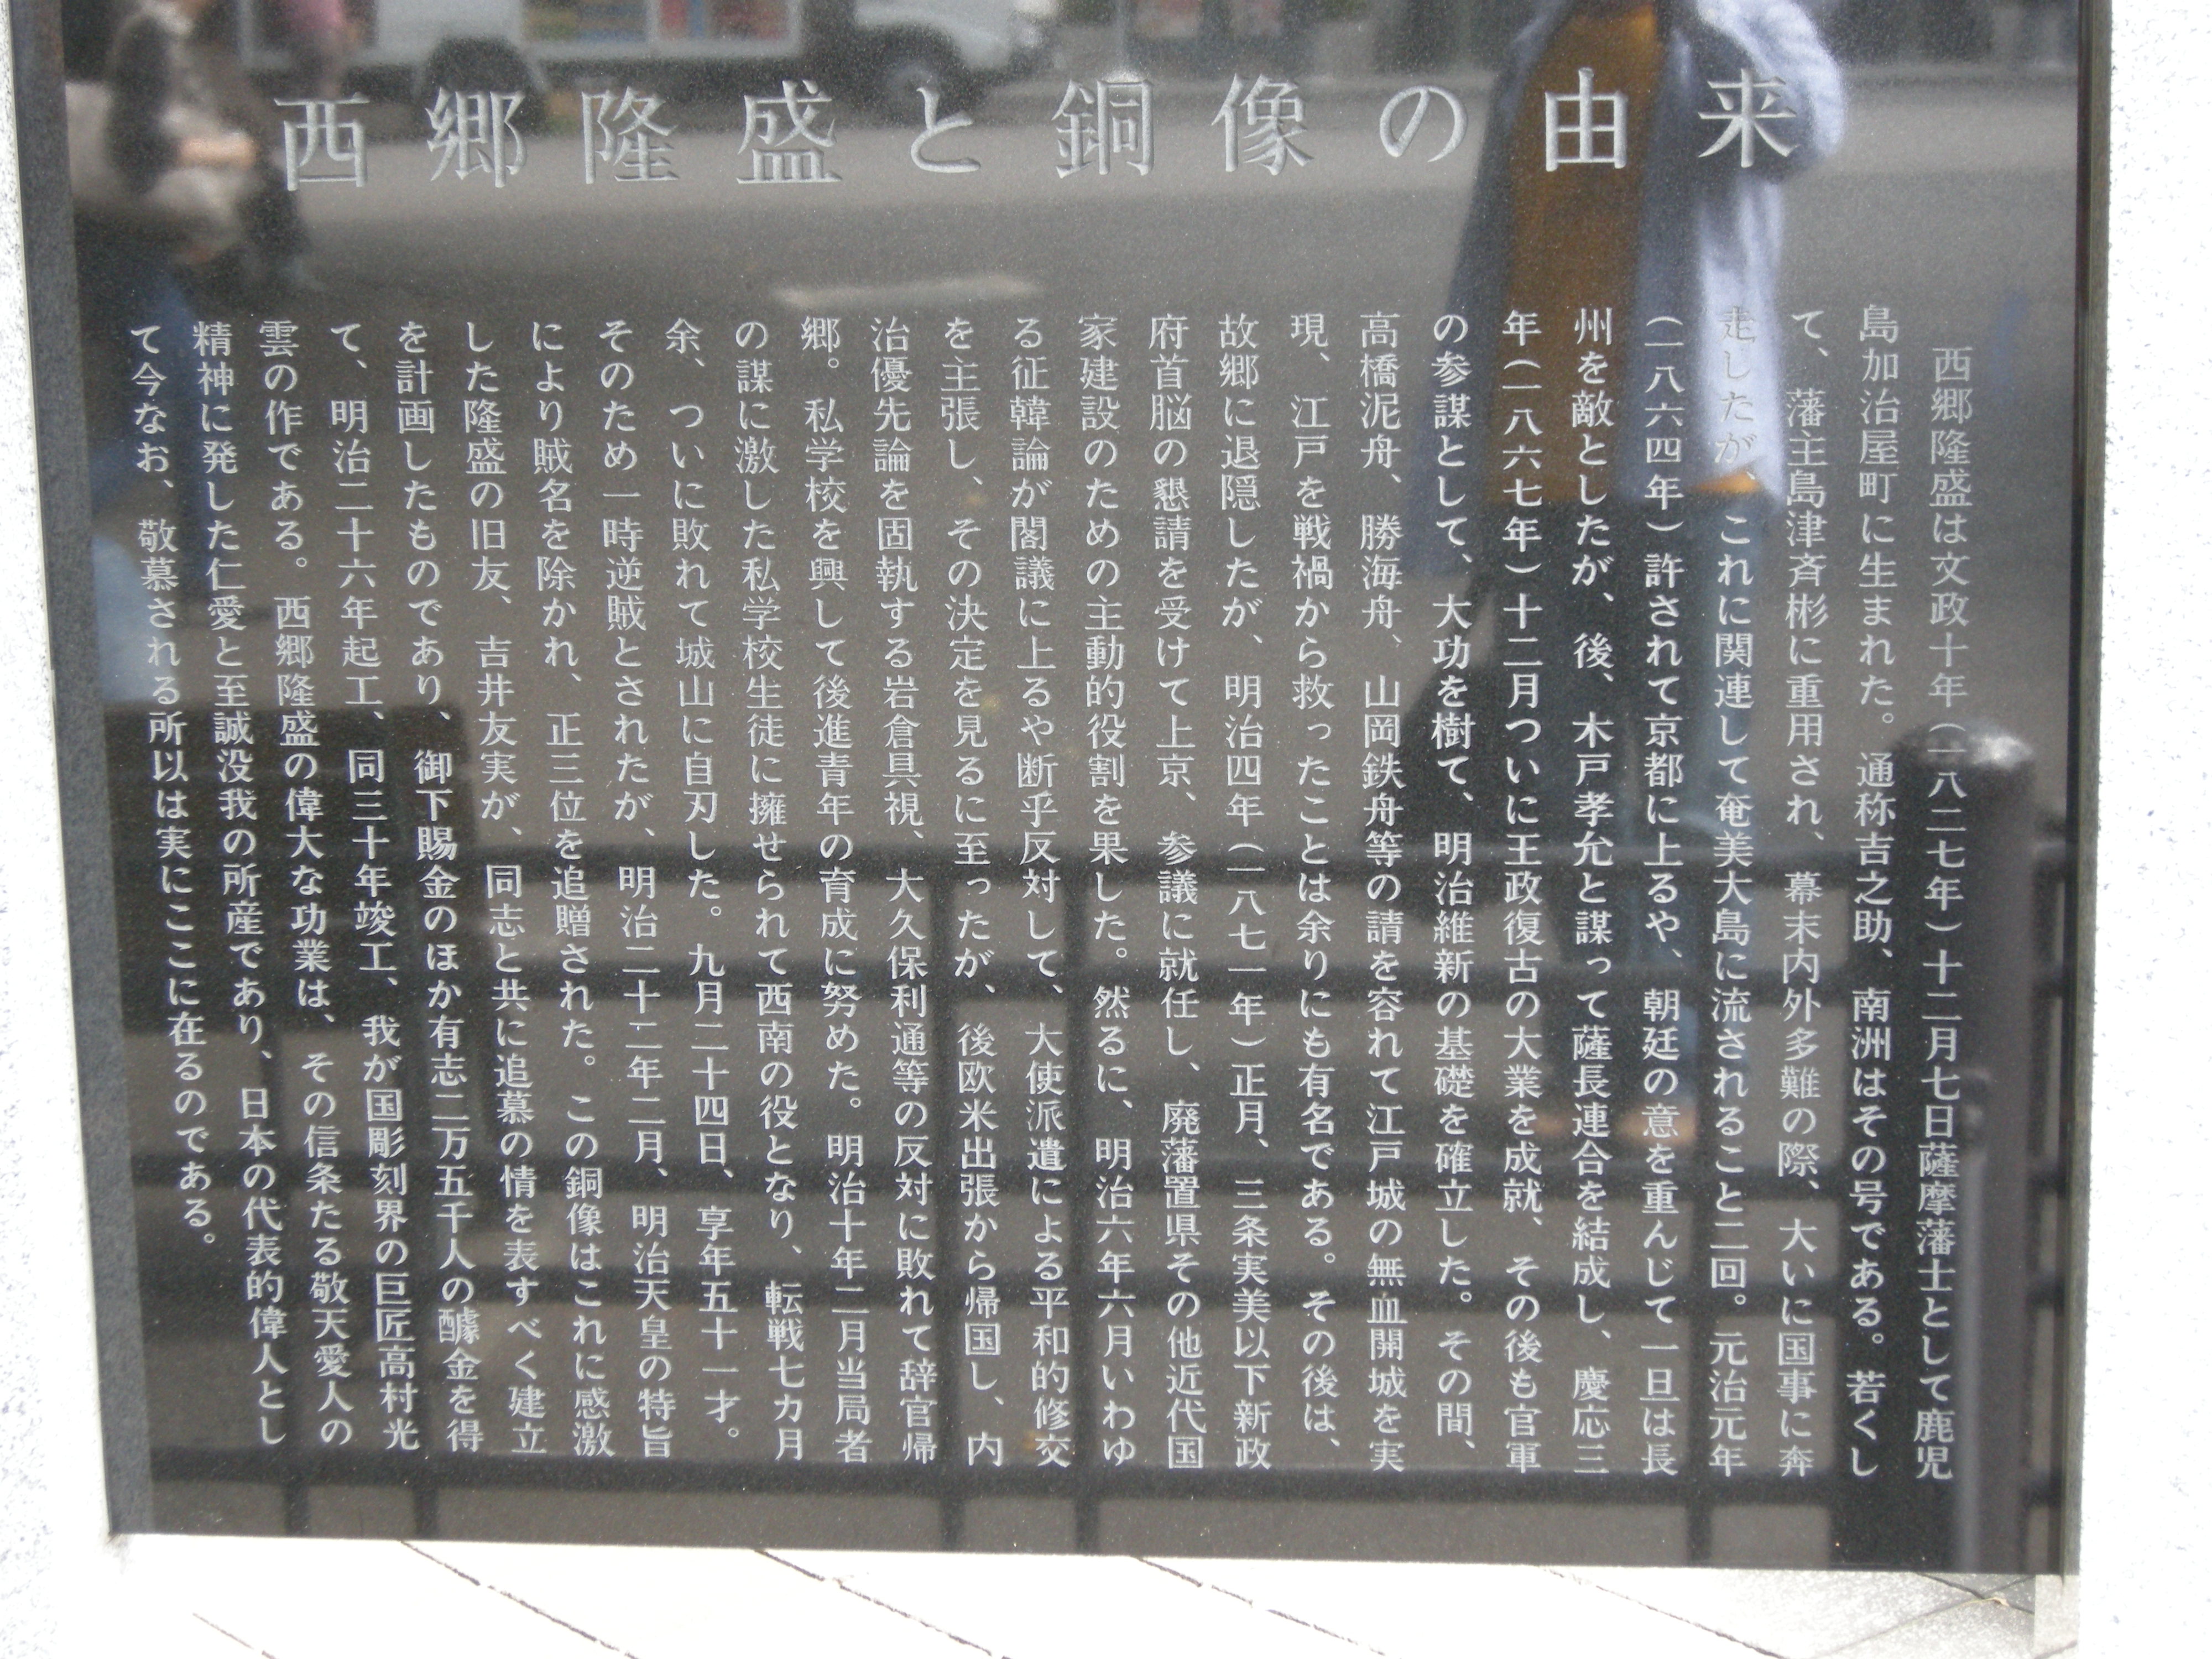 西郷隆盛と銅像の由来
西郷隆盛は文政十年(一八二七年)十二月七日薩摩藩士として鹿児
島加治屋町に生まれた。通称吉之助、南洲はその号である。若くし
て、藩主島津斉彬に重用され、幕末内外多難の際、大いに国事に奔
走したが、これに関連して奄美大島に流されること二回。元治元年
(一八六四年)許されて京都に上るや、朝廷の意を重んじて一旦は長
州を敵としたが、後、木戸孝允と謀って薩長連合を結成し、慶応三
年(一八六七年)十二月ついに王政復古の大業を成就、その後も官軍
の参謀として、大功を樹て、明治維新の基礎を確立した。その間、
高橋泥舟、勝海舟、山岡鉄舟等の請を容れて江戸城の無血開城を実
現、江戸を戦禍から救ったことは余りにも有名である。その後は、
故郷に退隠したが、明治四年(一八七一年)正月、三条実美以下新政
府首脳の懇請を受けて上京、参議に就任し、廃藩置県その他近代国
家建設のための主動的役割を果した。然るに、明治六年六月いわゆ
る征韓論が閣議に上るや断乎反対して、大使派遣による平和的修交
を主張し、その決定を見るに至ったが、後欧米出張から帰国し、内
治優先論を固執する岩倉具視、大久保利通等の反対に敗れて辞官帰
郷。私学校を興して後進青年の育成に努めた。明治十年二月当局者
の謀に激した私学校生徒に擁せられて西南の役となり、転戦七カ月
余、ついに敗れて城山に自刃した。九月二十四日、享年五十一才。
そのため一時逆賊とされたが、明治二十二年二月、明治天皇の特旨
により賊名を除かれ、正三位を追贈された。この銅像はこれに感激
した隆盛の旧友、吉井友実が、同志と共に追慕の情を表すべく建立
を計画したものであり、御下賜金のほか有志二万五千人の醵金を得
て、明治二十六年起工、同三十年竣工、我が国彫刻界の巨匠高村光
雲の作である。西郷隆盛の偉大な功業は、その信条たる敬天愛人の
精神に発した仁愛と至誠没我の所産であり、日本の代表的偉人とし
て今なお、敬慕される所以は実にここに在るのである。